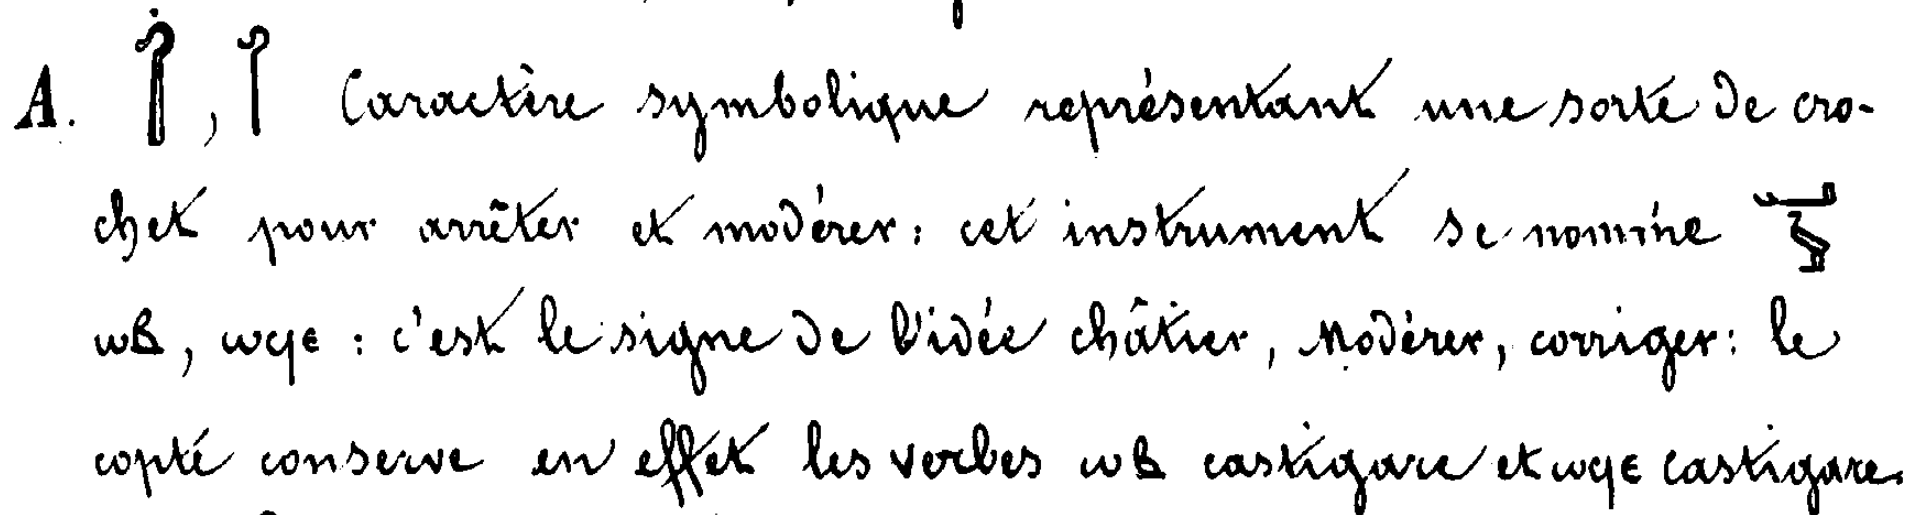 A. 𓋾, 𓋾 Caractère symbolique représentant une sorte de cro-
chet pour arrêter et modérer: cet instrument se nomme
ⲱⲃ, ⲱϥⲉ: c'est le signe de l'idée châtier, Modérer, corriger: le
copte conserve en effet les verbes ⲱⲃ castigare et ⲱϥⲉ castigare.